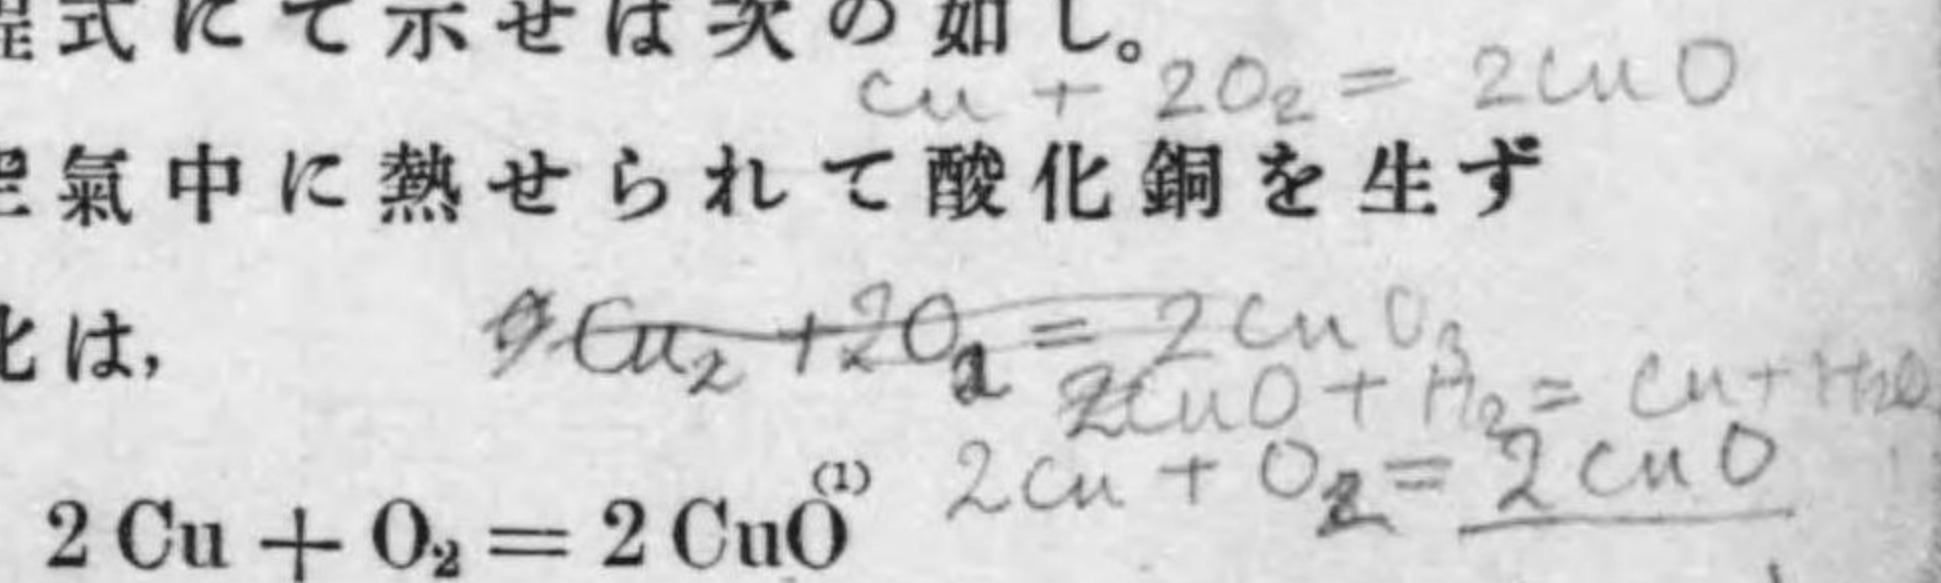 式にて示せば次の如し。
Cu + 2O₂ = 2CuO
氣中に熱せられて酸化銅を生ず
は,
Cu₂ + 2O₂ = 2CuO₃
2CuO + H₂ = Cu + H₂O
2Cu + O₂ = 2CuO
2 Cu + O₂ = 2 CuO⁽¹⁾